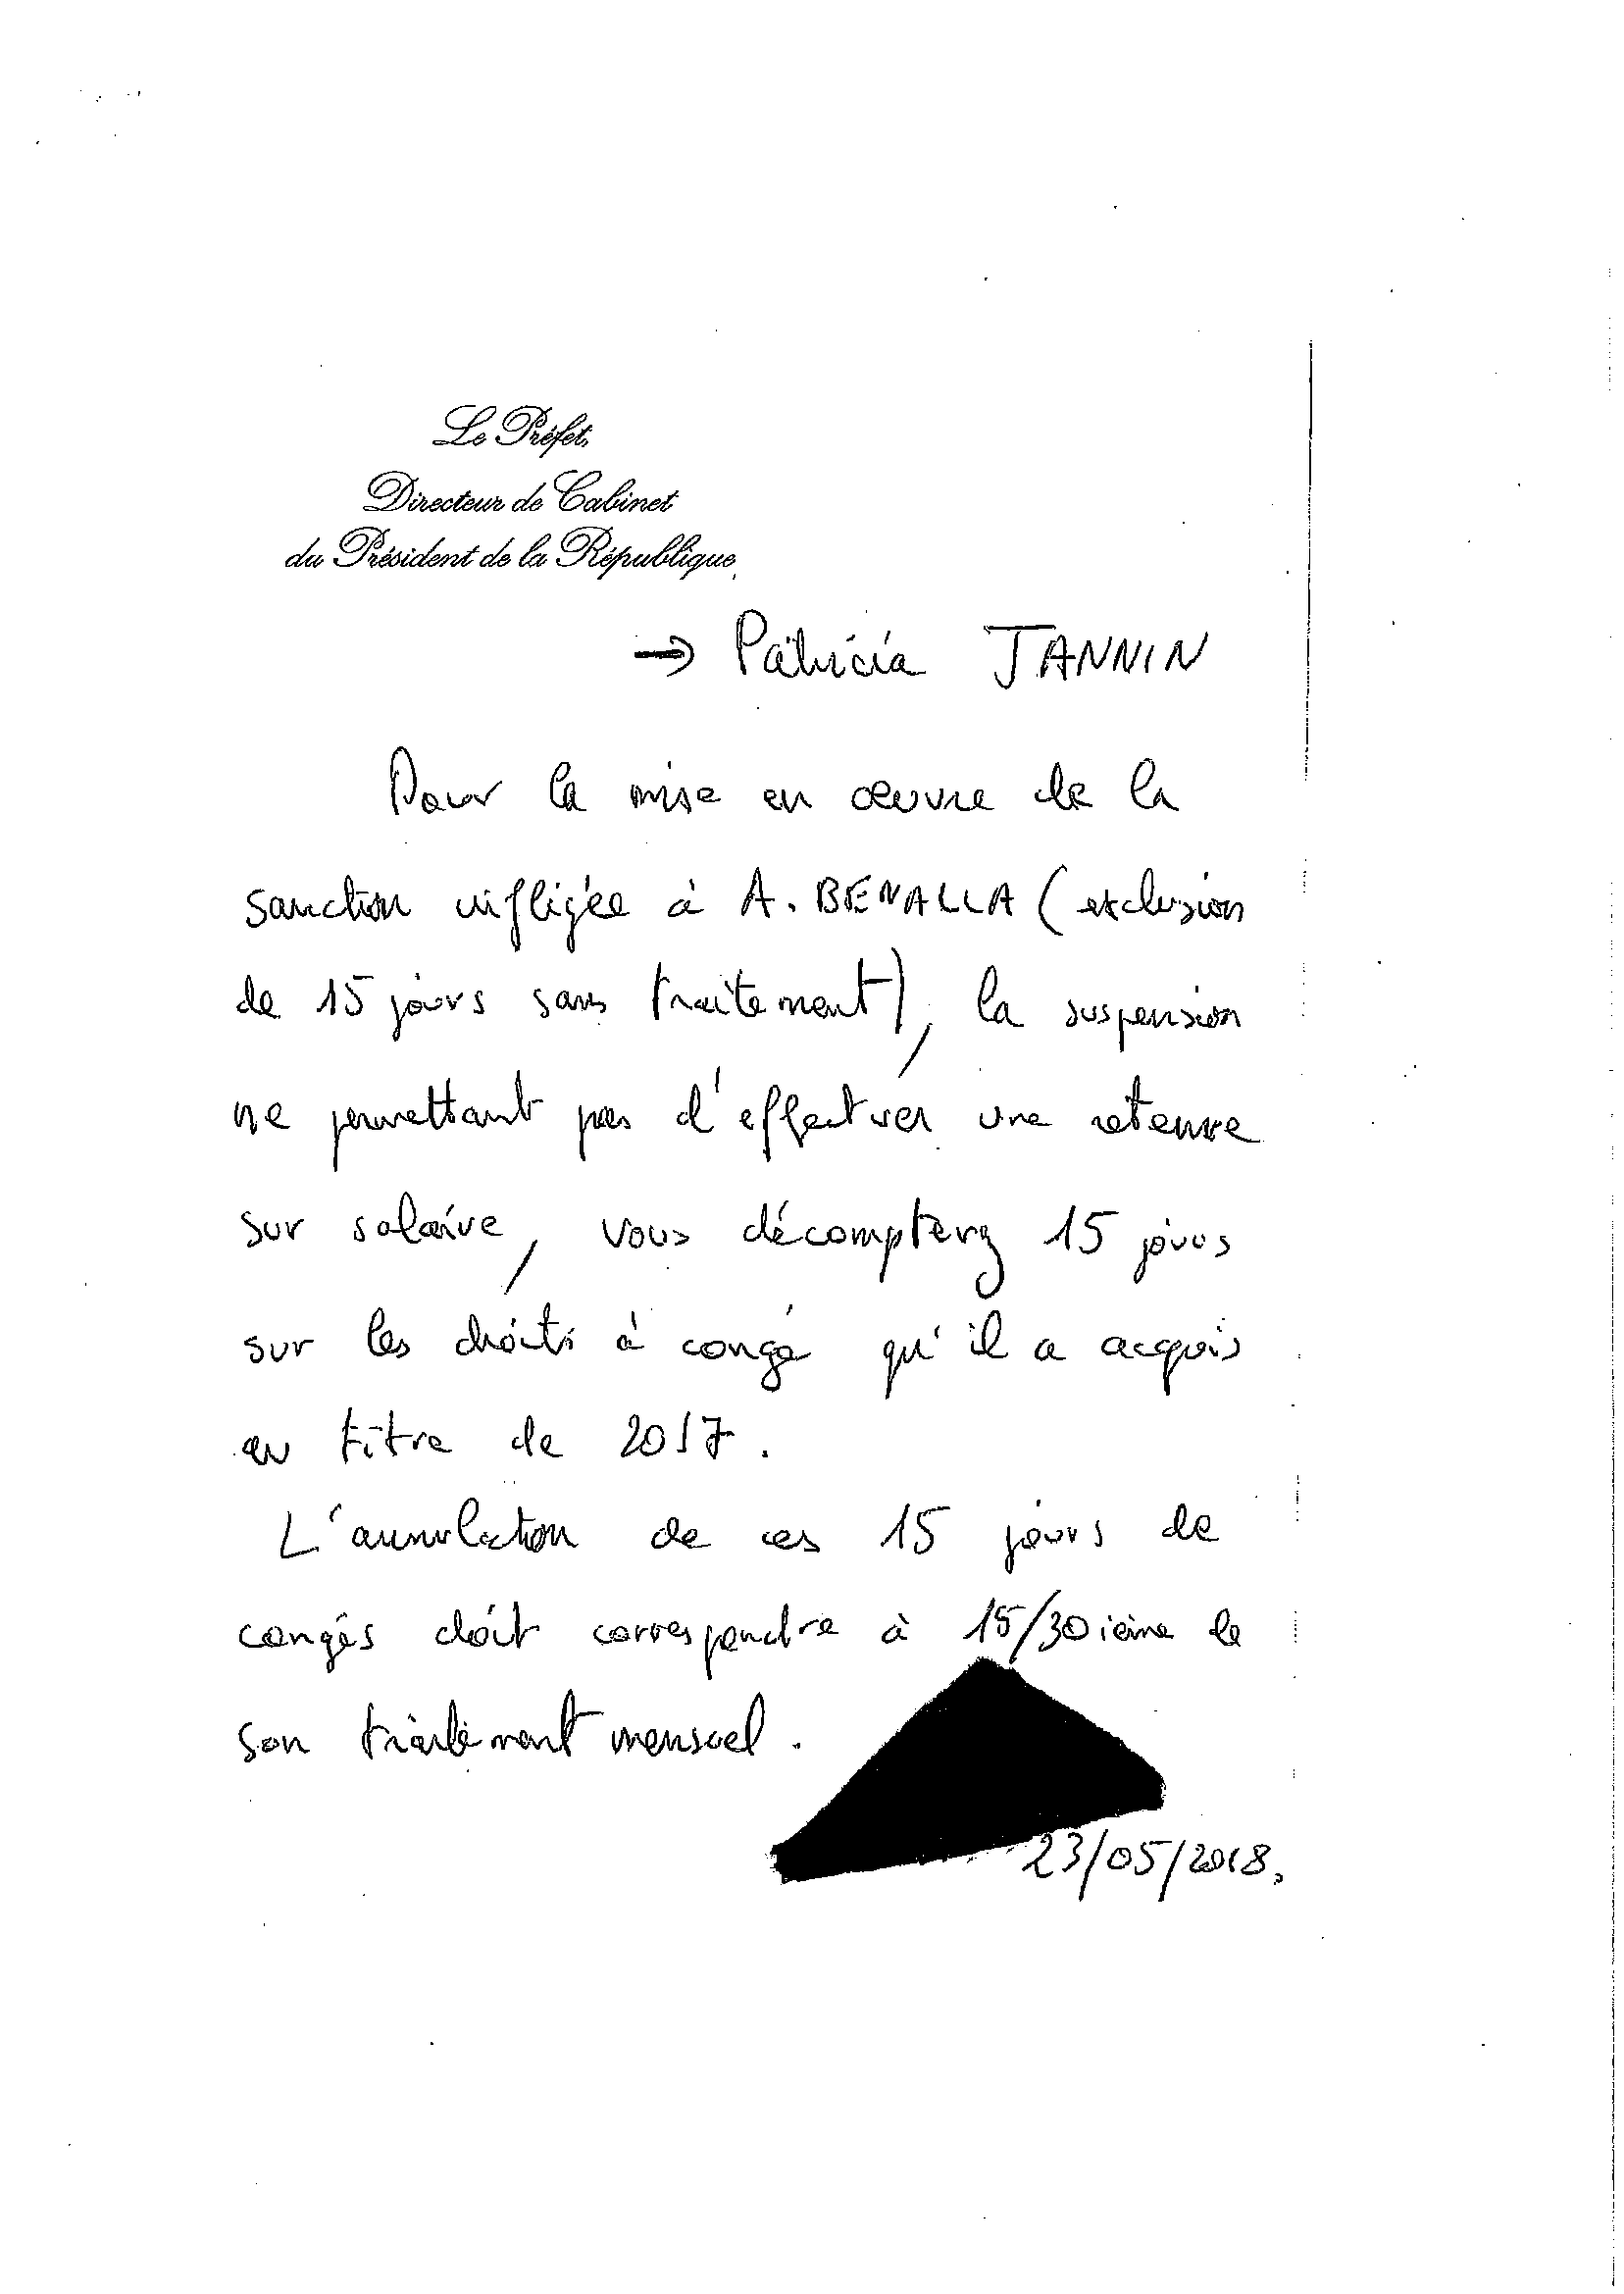 Le Préfet,
Directeur de Cabinet
du Président de la République
→ Patricia JANNIN
Pour la mise en œuvre de la
sanction infligée à A. BENALLA (exclusion
de 15 jours sans traitement), la suspension
ne permettant pas d'effectuer une retenue
sur salaire, vous décompterez 15 jours
sur les droits à congé qu'il a acquis
au titre de 2017.
L'annulation de ces 15 jours de
congés doit correspondre à 15/30ième de
son traitement mensuel.
23/05/2018.